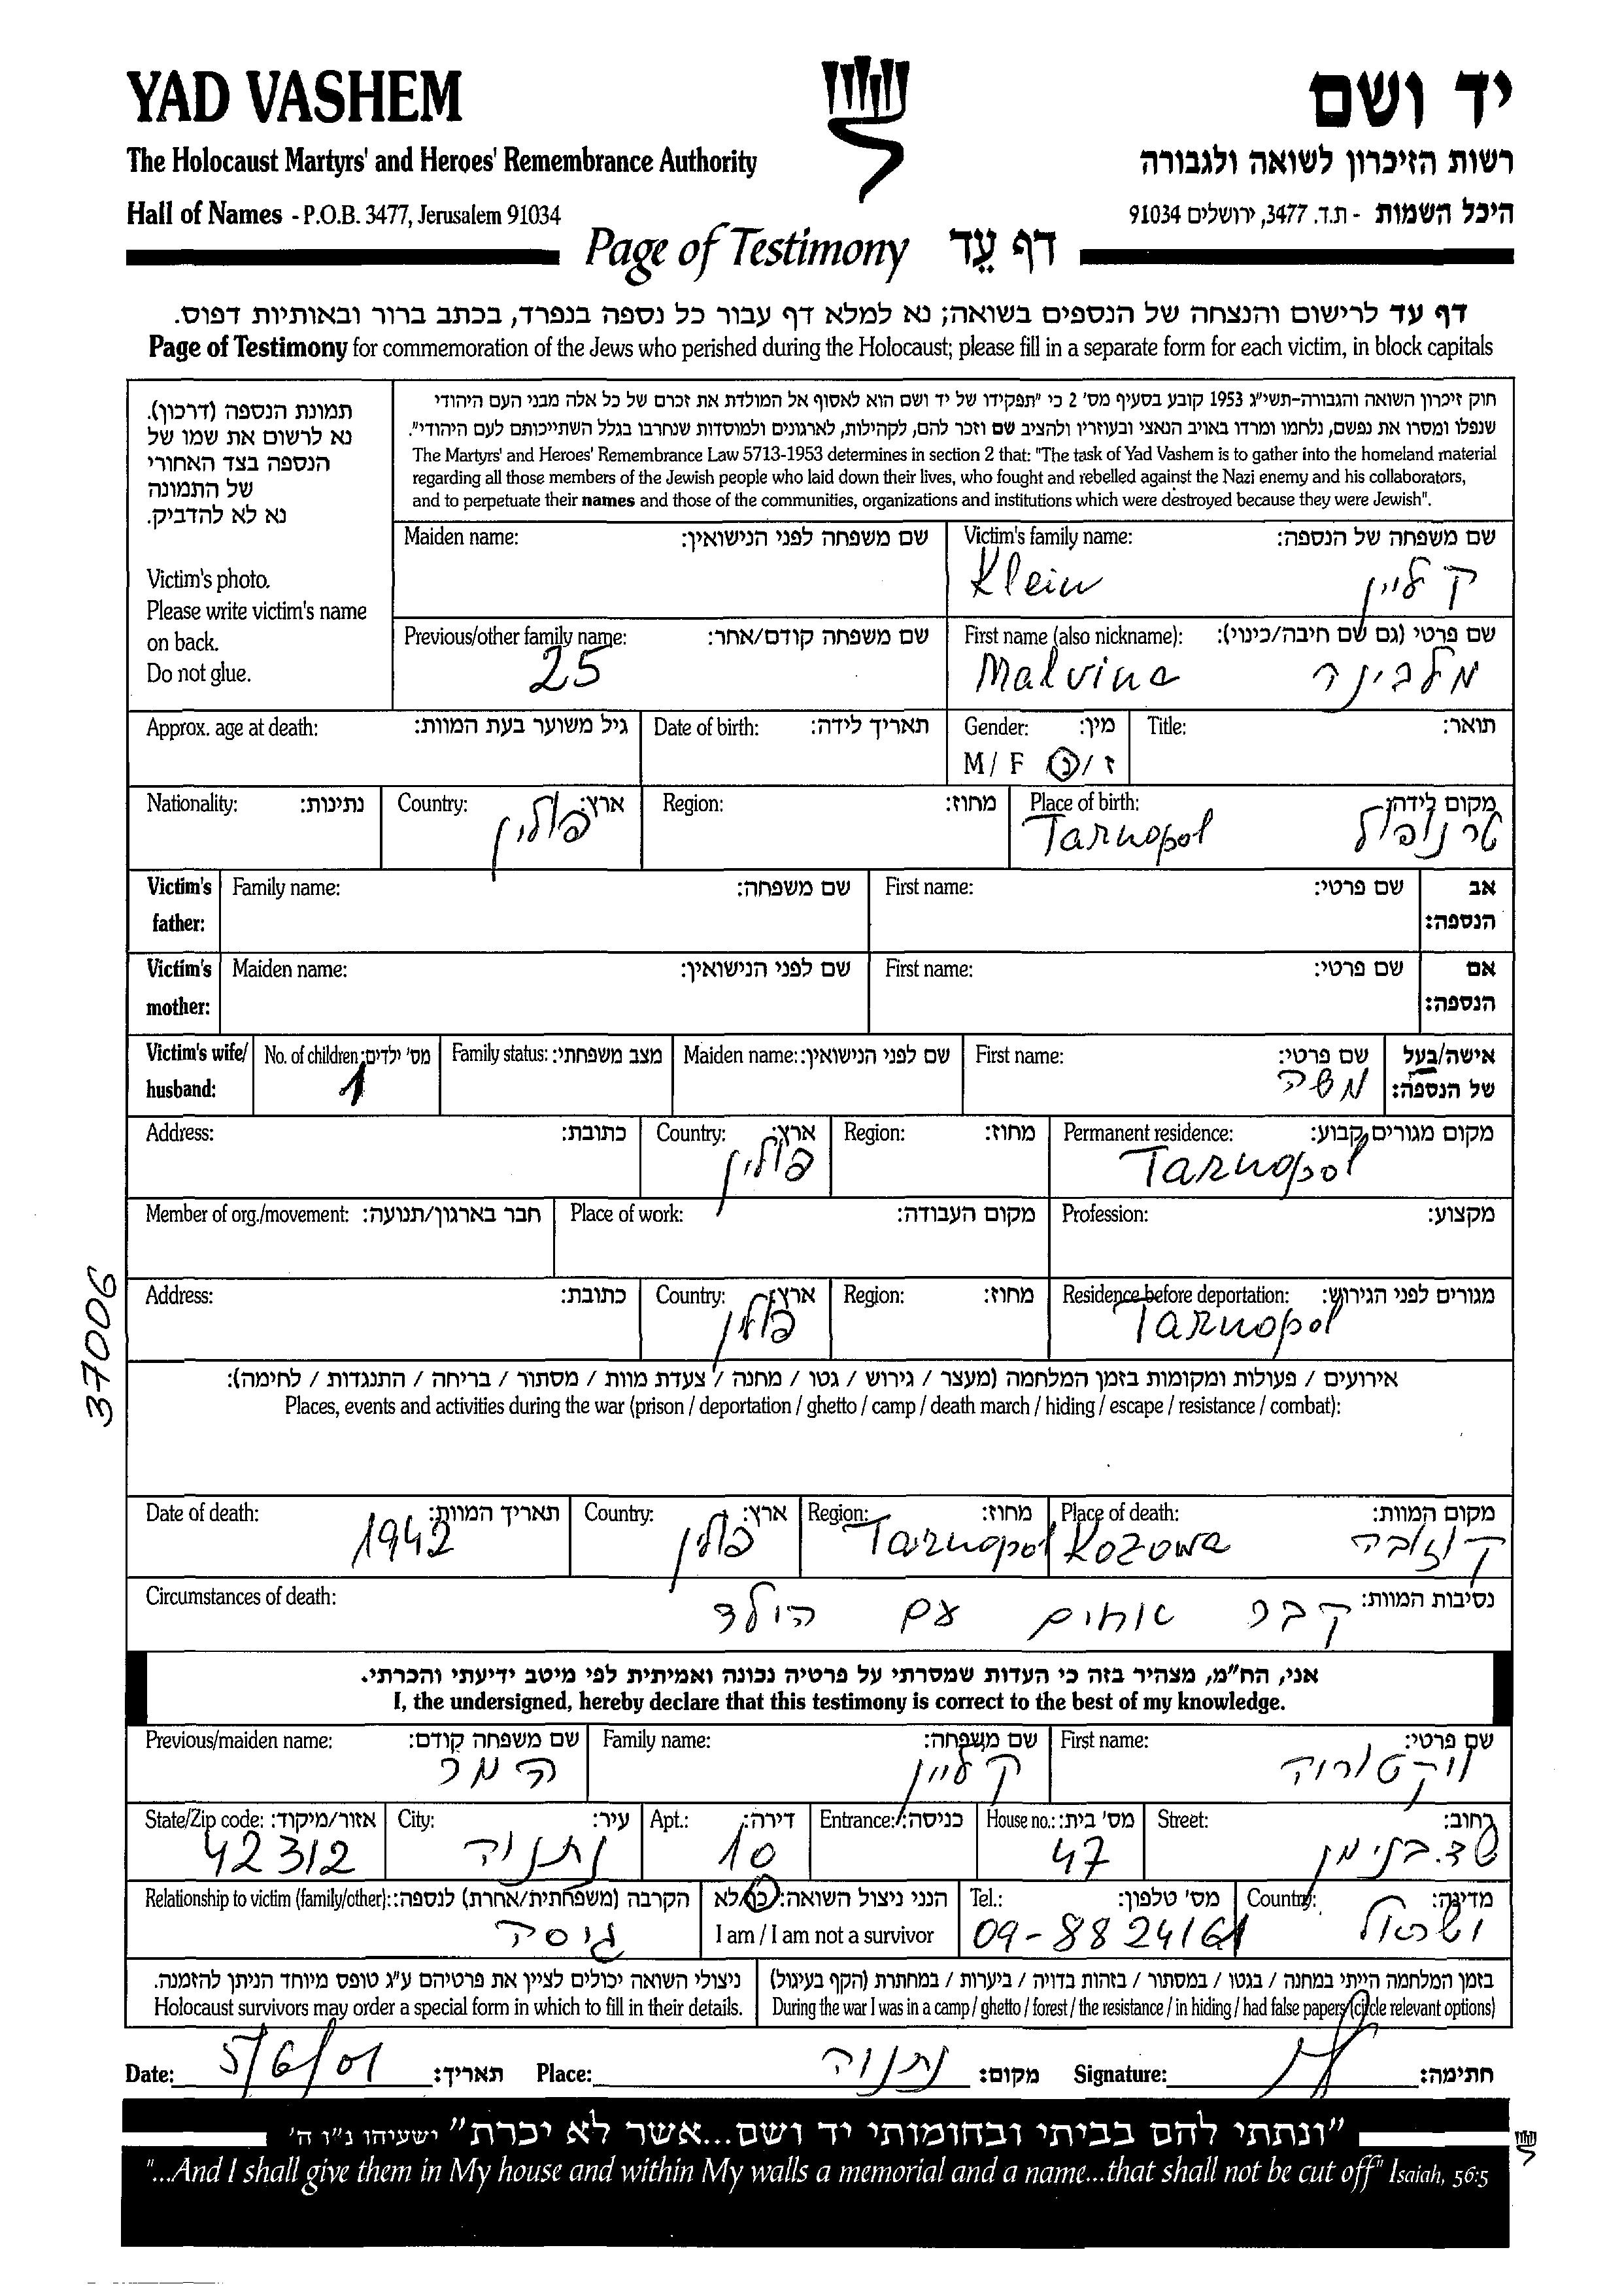 YAD VASHEM
יד ושם
The Holocaust Martyrs' and Heroes' Remembrance Authority
רשות הזיכרון לשואה ולגבורה
Hall of Names - P.O.B. 3477, Jerusalem 91034
היכל השמות - ת.ד. 3477, ירושלים 91034
Page of Testimony דף עֵד
דף עד לרישום והנצחה של הנספים בשואה; נא למלא דף עבור כל נספה בנפרד, בכתב ברור ובאותיות דפוס.
Page of Testimony for commemoration of the Jews who perished during the Holocaust; please fill in a separate form for each victim, in block capitals
תמונת הנספה (דרכון).
נא לרשום את שמו של
הנספה בצד האחורי
של התמונה
נא לא להדביק.
Victim's photo.
Please write victim's name
on back.
Do not glue.
חוק זיכרון השואה והגבורה-תשי"ג 1953 קובע בסעיף מס' 2 כי "תפקידו של יד ושם הוא לאסוף אל המולדת את זכרם של כל אלה מבני העם היהודי
שנפלו ומסרו את נפשם, נלחמו ומרדו באויב הנאצי ובעוזריו ולהציב שם וזכר להם, לקהילות, לארגונים ולמוסדות שנחרבו בגלל השתייכותם לעם היהודי".
The Martyrs' and Heroes' Remembrance Law 5713-1953 determines in section 2 that: "The task of Yad Vashem is to gather into the homeland material
regarding all those members of the Jewish people who laid down their lives, who fought and rebelled against the Nazi enemy and his collaborators,
and to perpetuate their names and those of the communities, organizations and institutions which were destroyed because they were Jewish".
Maiden name: שם משפחה לפני הנישואין:
Victim's family name: שם משפחה של הנספה:
Klein קליין
Previous/other family name: שם משפחה קודם/אחר:
25
First name (also nickname): שם פרטי (גם שם חיבה/כינוי):
Malvina מלבינה
Approx. age at death: גיל משוער בעת המוות:
Date of birth: תאריך לידה:
Gender: מין:
M / F ז / נ
Title: תואר:
Nationality: נתינות:
Country: ארץ:
פולין
Region: מחוז:
Place of birth: מקום לידה:
Tarnopol טרנופול
Victim's father: Family name: שם משפחה: First name: שם פרטי: אב הנספה:
Victim's mother: Maiden name: שם לפני הנישואין: First name: שם פרטי: אם הנספה:
Victim's wife/ husband: No. of children: מס' ילדים: Family status: מצב משפחתי: Maiden name: שם לפני הנישואין: First name: שם פרטי: אישה/בעל של הנספה:
1 משה
Address: כתובת: Country: ארץ: Region: מחוז: Permanent residence: מקום מגורים קבוע:
פולין Tarnopol
Member of org./movement: חבר בארגון/תנועה: Place of work: מקום העבודה: Profession: מקצוע:
Address: כתובת: Country: ארץ: Region: מחוז: Residence before deportation: מגורים לפני הגירוש:
פולין Tarnopol
37006
אירועים / פעולות ומקומות בזמן המלחמה (מעצר / גירוש / גטו / מחנה / צעדת מוות / מסתור / בריחה / התנגדות / לחימה):
Places, events and activities during the war (prison / deportation / ghetto / camp / death march / hiding / escape / resistance / combat):
Date of death: תאריך המוות: Country: ארץ: Region: מחוז: Place of death: מקום המוות:
1942 פולין Tarnopol Kozowa קוזובה
Circumstances of death: נסיבות המוות:
קבר אחים עם הילד
אני, הח"מ, מצהיר בזה כי העדות שמסרתי על פרטיה נכונה ואמיתית לפי מיטב ידיעתי והכרתי.
I, the undersigned, hereby declare that this testimony is correct to the best of my knowledge.
Previous/maiden name: שם משפחה קודם: Family name: שם משפחה: First name: שם פרטי:
המר קליין ויקטוריה
State/Zip code: אזור/מיקוד: City: עיר: Apt.: דירה: Entrance: כניסה: House no.: מס' בית: Street: רחוב:
42312 נתניה 10 47 שד. בנימין
Relationship to victim (family/other): הקרבה (משפחתית/אחרת) לנספה: הנני ניצול השואה: כן/לא Tel.: מס' טלפון: Country: מדינה:
גיסה I am / I am not a survivor 09-8824161 ישראל
ניצולי השואה יכולים לציין את פרטיהם ע"ג טופס מיוחד הניתן להזמנה.
Holocaust survivors may order a special form in which to fill in their details.
בזמן המלחמה הייתי במחנה / בגטו / במסתור / בזהות בדויה / ביערות / במחתרת (הקף בעיגול)
During the war I was in a camp / ghetto / forest / the resistance / in hiding / had false papers (circle relevant options)
Date: 5/6/01 תאריך: Place: נתניה מקום: Signature: חתימה:
"ונתתי להם בביתי ובחומותי יד ושם...אשר לא יכרת" ישעיהו נ"ו ה'
"...And I shall give them in My house and within My walls a memorial and a name...that shall not be cut off" Isaiah, 56:5